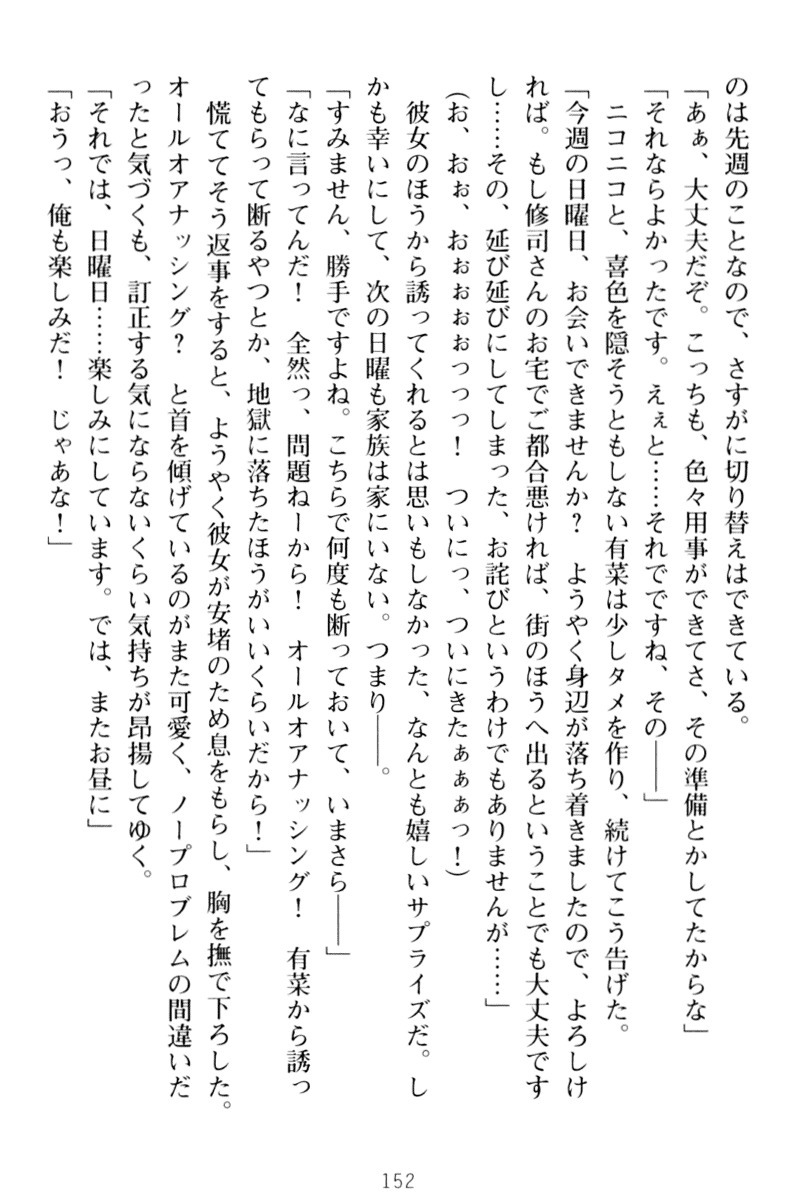 のは先週のことなので、さすがに切り替えはできている。
「あぁ、大丈夫だぞ。こっちも、色々用事ができてさ、その準備とかしてたからな」
「それならよかったです。えぇと……それでですね、その――」
　ニコニコと、喜色を隠そうともしない有菜は少しタメを作り、続けてこう告げた。
「今週の日曜日、お会いできませんか？　ようやく身辺が落ち着きましたので、よろしけ
れば。もし修司さんのお宅でご都合悪ければ、街のほうへ出るということでも大丈夫です
し……その、延び延びにしてしまった、お詫びというわけでもありませんが……」
（お、おぉ、おぉぉぉぉっっっ！　ついにっ、ついにきたぁぁぁっ！）
　彼女のほうから誘ってくれるとは思いもしなかった、なんとも嬉しいサプライズだ。し
かも幸いにして、次の日曜も家族は家にいない。つまり――。
「すみません、勝手ですよね。こちらで何度も断っておいて、いまさら――」
「なに言ってんだ！　全然っ、問題ねーから！　オールオアナッシング！　有菜から誘っ
てもらって断るやつとか、地獄に落ちたほうがいいくらいだから！」
　慌ててそう返事をすると、ようやく彼女が安堵のため息をもらし、胸を撫で下ろした。
オールオアナッシング？　と首を傾げているのがまた可愛く、ノープロブレムの間違いだ
ったと気づくも、訂正する気にならないくらい気持ちが昂揚してゆく。
「それでは、日曜日……楽しみにしています。では、またお昼に」
「おうっ、俺も楽しみだ！　じゃあな！」
152